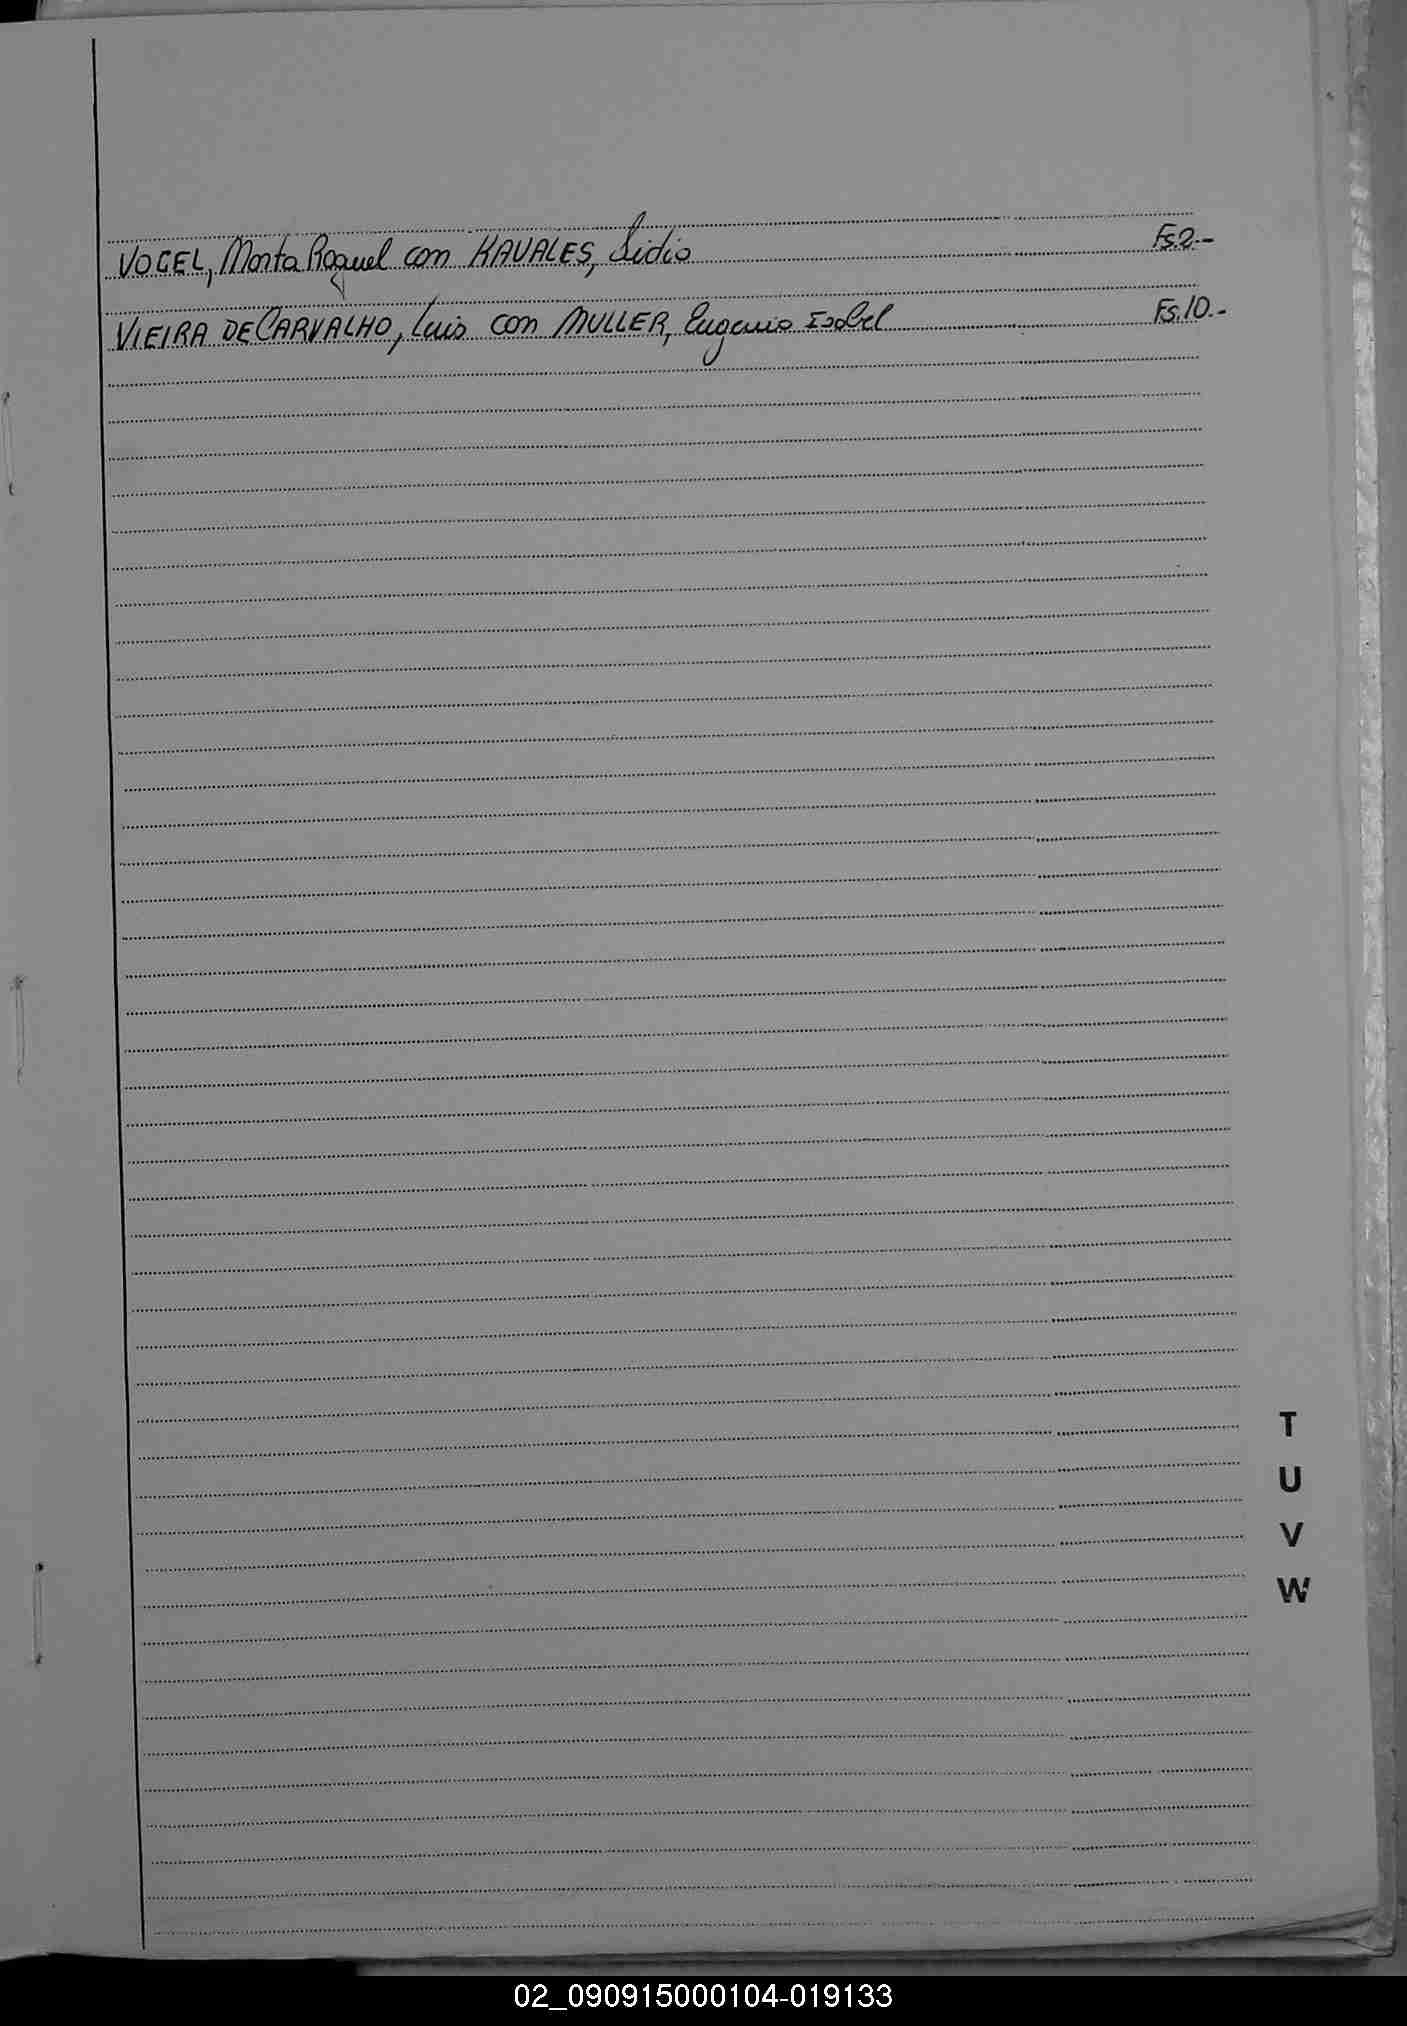 VOGEL, Marta Raquel con KAVALES, Lidia Fs.2.-
VIEIRA DE CARVALHO, Luis con MULLER, Eugenia Isabel Fs.10.-
T
U
V
W
02_090915000104-019133